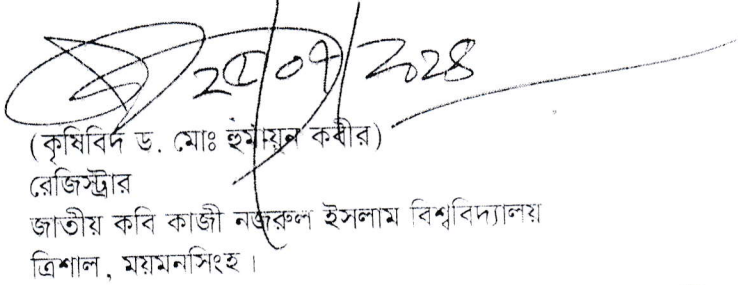 ২৫/০৭/২০২৪
(কৃষিবিদ ড. মোঃ হুমায়ুন কবীর)
রেজিস্ট্রার
জাতীয় কবি কাজী নজরুল ইসলাম বিশ্ববিদ্যালয়
ত্রিশাল, ময়মনসিংহ।